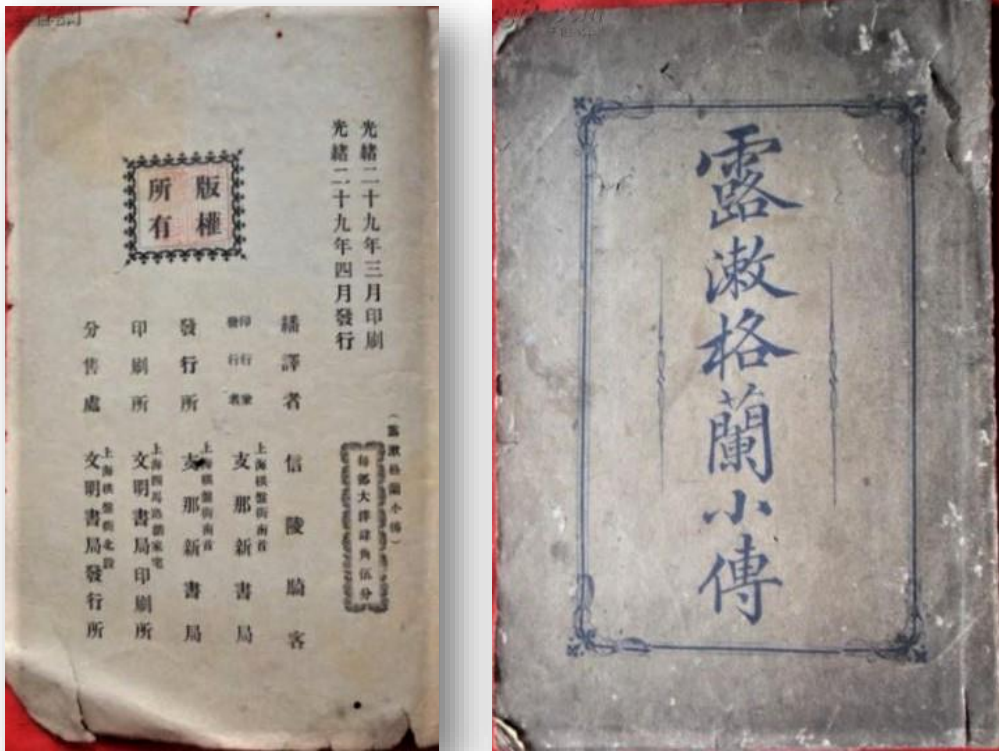 露漱格蘭小傳
光緒二十九年三月印刷
光緒二十九年四月發行
版權
所有
(露漱格蘭小傳)
每部大洋肆角伍分
繙譯者 信陵騎客
印行兼
發行者
上海棋盤街南首
支那新書局
發行所
上海棋盤街南首
支那新書局
印刷所
上海四馬路
文明書局印刷所
分售處
上海棋盤街北
文明書局發行所